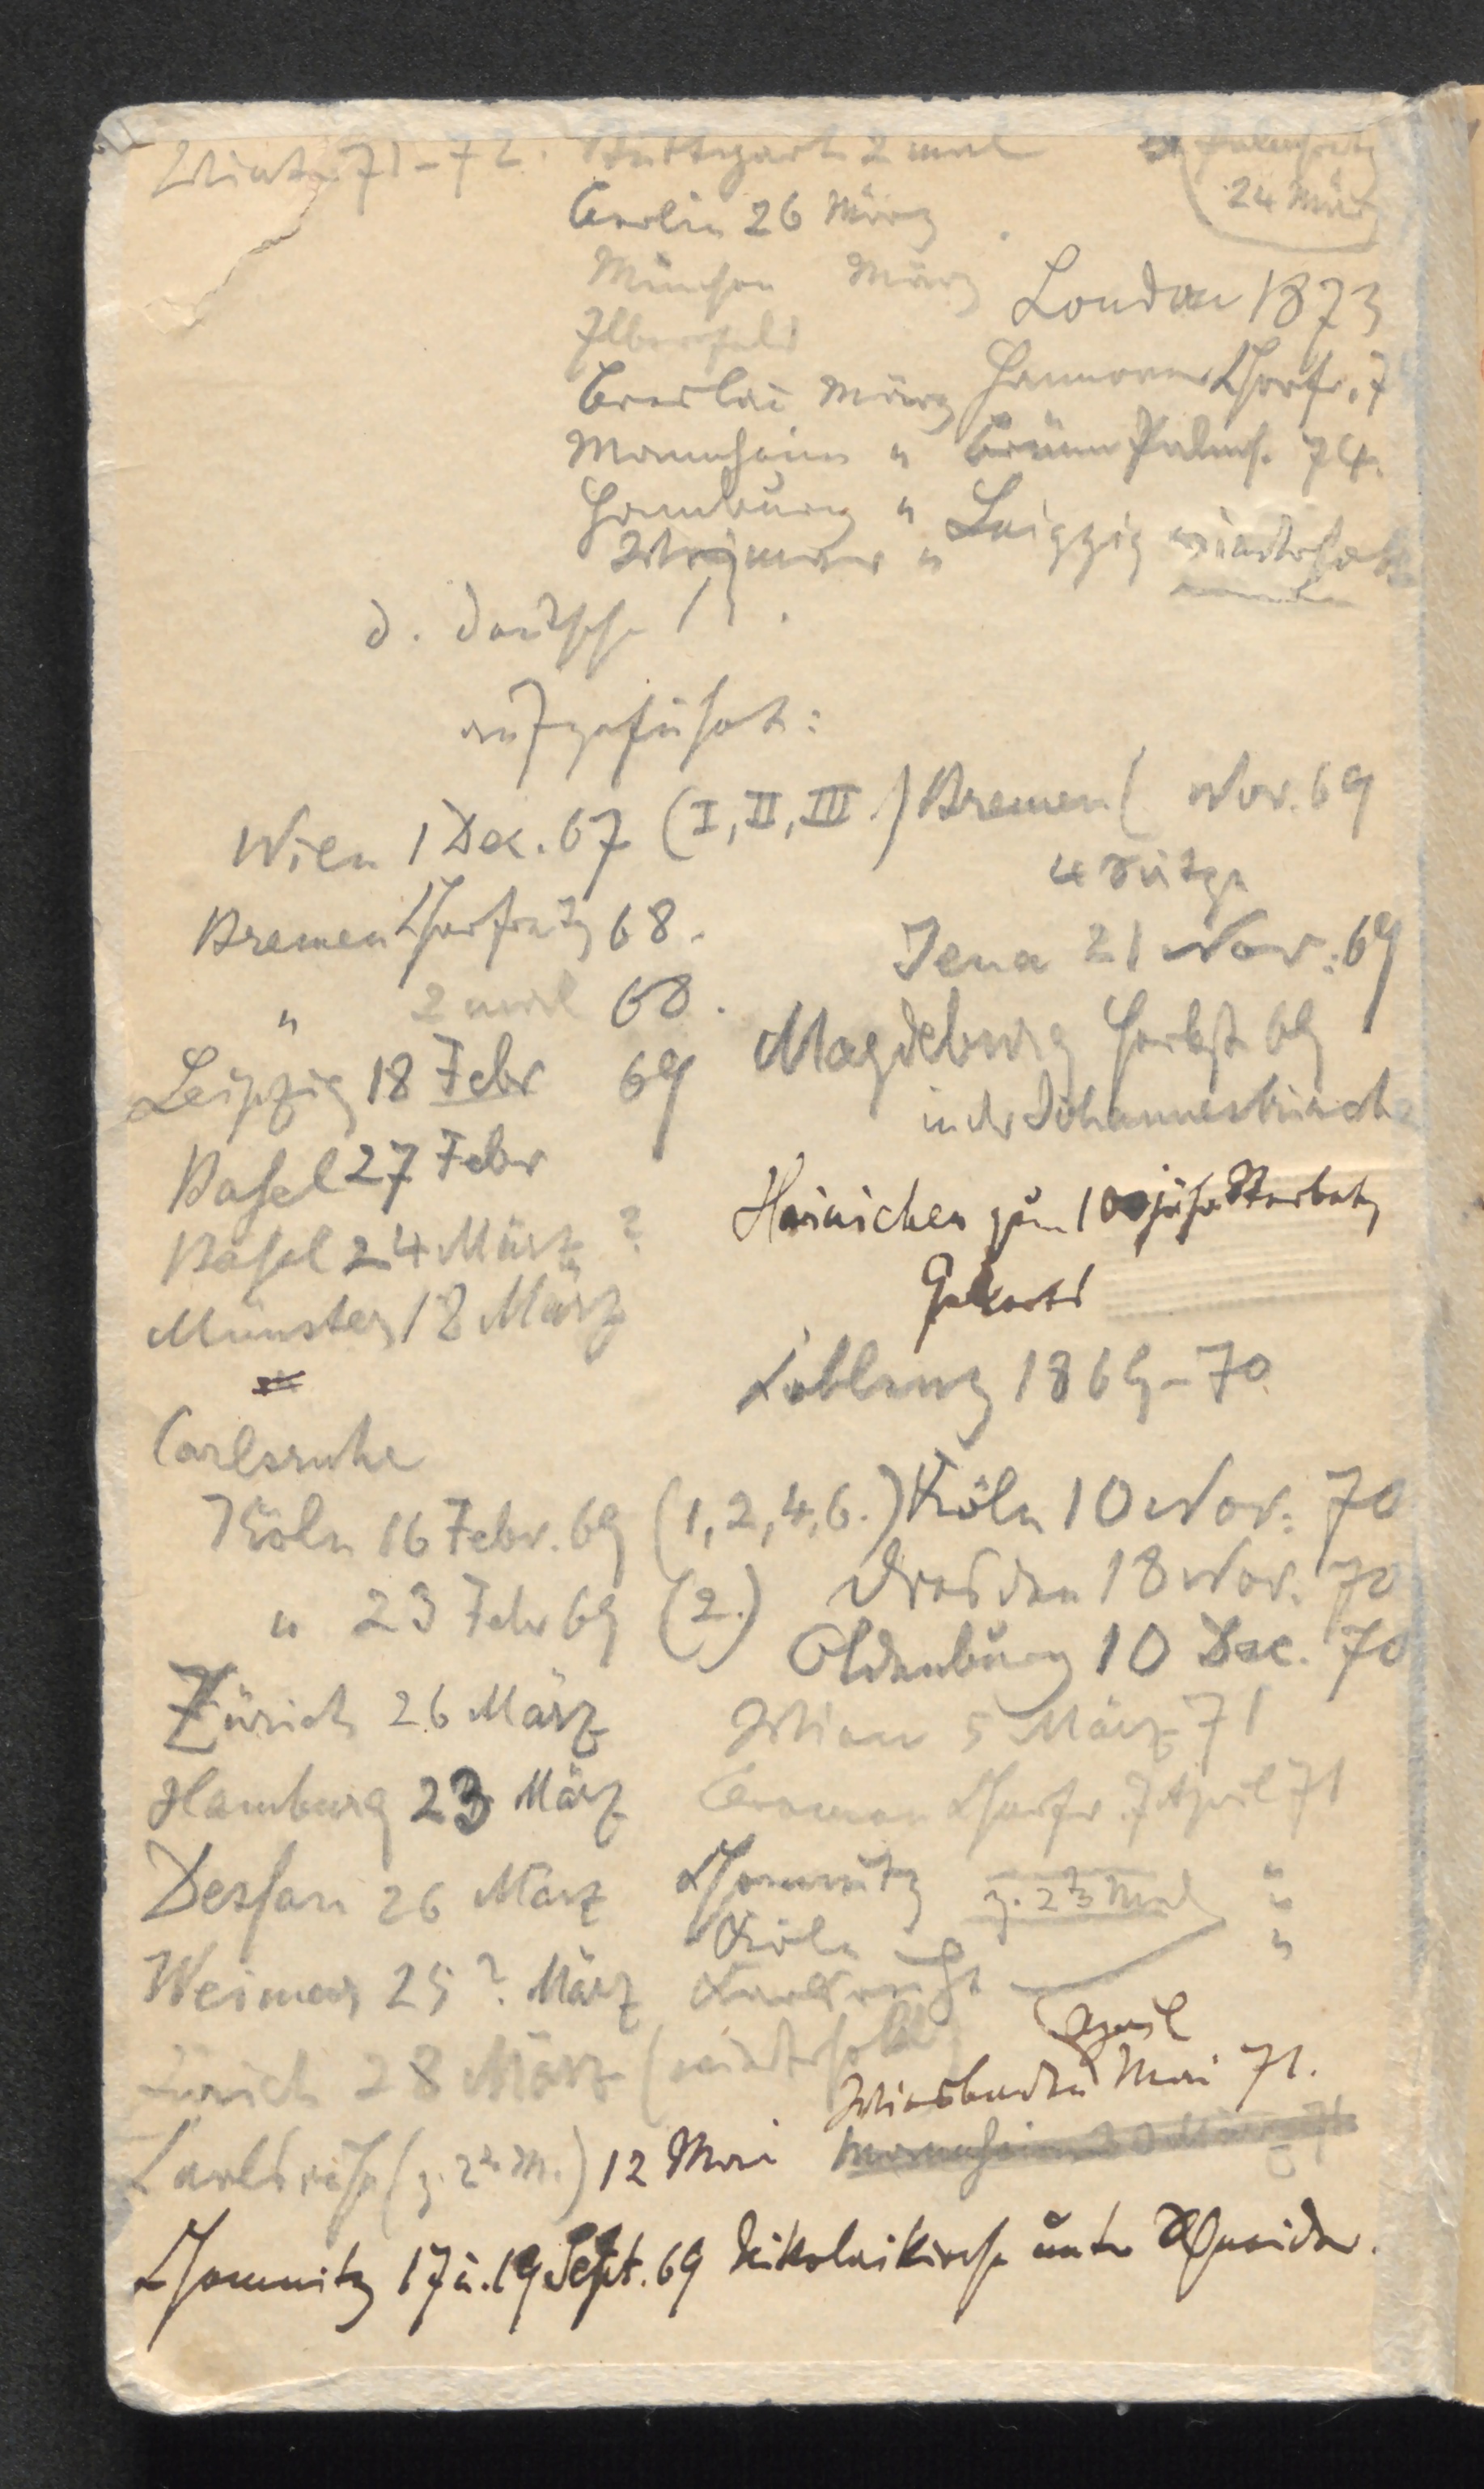 Winter 71–72. Stuttgart 2 mal
Palmsonntag
24 März
Berlin 26 März
München März
London 1873
Elberfeld
Breslau März
Hannover Charfr. 7
Mannheim "
Brünn Palms. 74.
Hamburg "
Leipzig wiederholt
Weimar "
d. deutsche
aufgeführt:
Wien 1 Dec. 67 (I, II, III.)
Bremen ( Nov. 69
4 Sätze
Bremen Charfreitg 68.
Jena 21 Nov: 69
" 2 mal 68.
Magdeburg Herbst 69
Leipzig 18 Febr 69
in der Johanneskirche
Basel 27 Febr
Hainichen zum 100jähr Sterbetg
Basel 24 März ?
Gellerts
Münster 18 März
Coblenz 1869–70
Carlsruhe
Köln 16 Febr. 69 (1, 2, 4, 6.)
Köln 10 Nov: 70
" 23 Febr 69 (2.)
Dresden 18 Nov. 70
Oldenburg 10 Dec. 70
Zürich 26 März
Wien 5 März 71
Hamburg 23 März
Bremen Charfr. 7 April 71
Dessau 26 März
Chemnitz z. 2t Mal "
Köln "
Weimar 25? März
Karlsruhe "
Zürich 28 März (wiederholt)
April
Wiesbaden Mai 71.
Carlsruhe (z. 2t M.) 12 Mai
Mannheim 20 März 71
Chemnitz 17 u. 19 Sept. 69 Nikolaikirche unter Schneider.